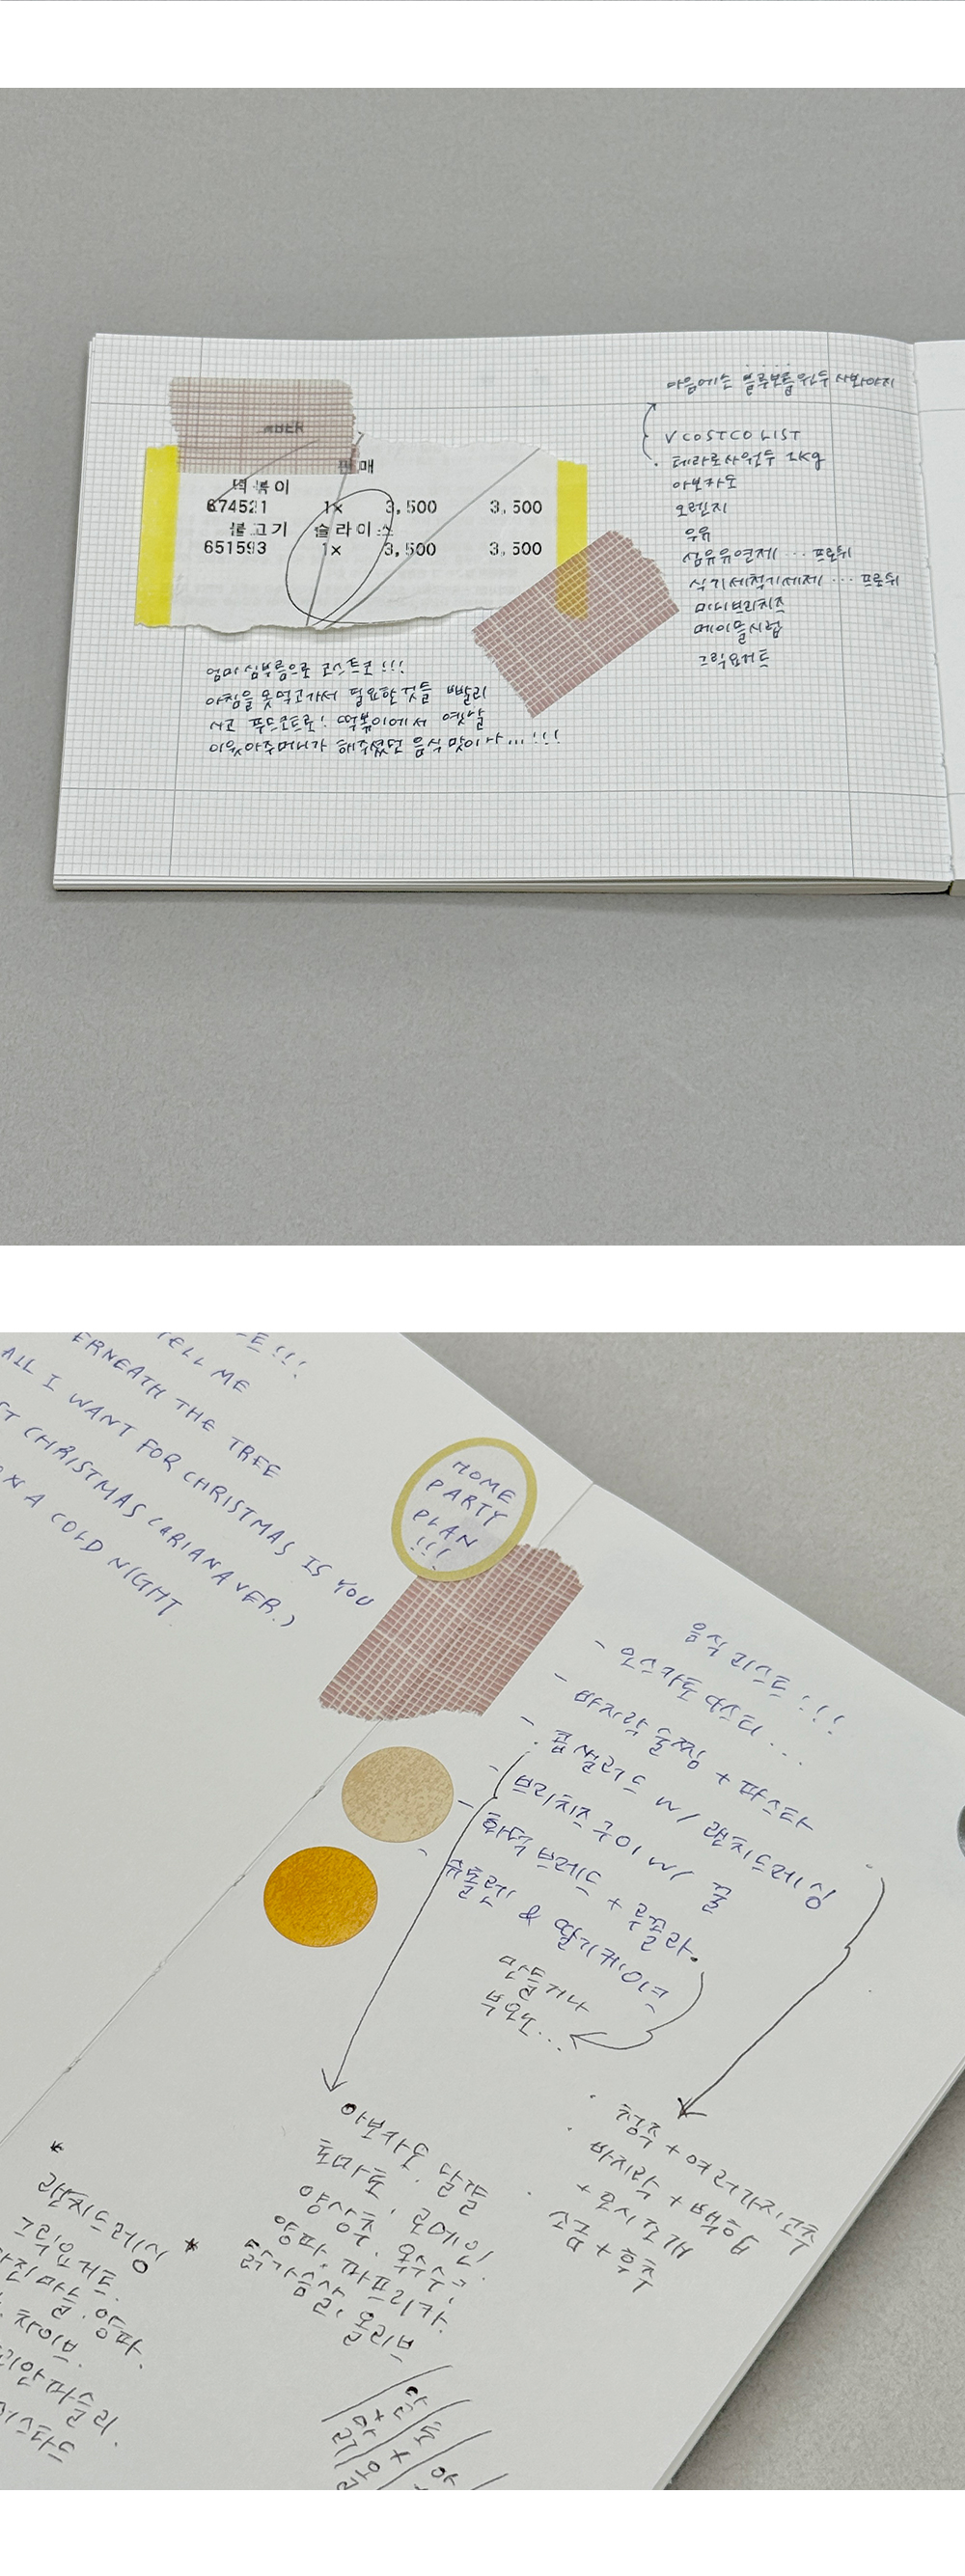 판매
떡볶이
674521 1× 3,500 3,500
불고기 슬라이스
651593 1× 3,500 3,500
엄마 심부름으로 코스트코!!!
아침을 못먹고가서 필요한것들 빨리
사고 푸드코트로! 떡볶이에서 옛날
이웃아주머니가 해주셨던 음식 맛이 나...!!!
다음에는 블루보틀원두 사봐야지
V COSTCO LIST
테라로사원두 1kg
아보카도
오렌지
우유
섬유유연제 ... 프로쉬
식기세척기세제 ... 프로쉬
미니브리치즈
메이플시럽
그릭요거트
TELL ME
ERNEATH THE TREE
ALL I WANT FOR CHRISTMAS IS YOU
ST CHRISTMAS (ARIANA VER.)
ON A COLD NIGHT
HOME
PARTY
PLAN
!!!
음식 리스트!!!
- 오스카토 다스티...
- 바지락술찜 + 파스타
- 콥샐러드 w/ 랜치드레싱
- 브리치즈구이 w/ 꿀
- 화덕브레드 + 루꼴라.
- 슈톨렌 & 딸기케이크
만들거나
부요노...
청주 + 여러가지고추
바지락 + 백합
+ 모시조개
소금 + 후추
아보카도, 달걀
토마토, 로메인,
양상추, 옥수수,
양파, 파프리카,
닭가슴살, 올리브
랜치드레싱
그릭요거트.
다진마늘. 양파.
차이브.
파슬리.
머스타드